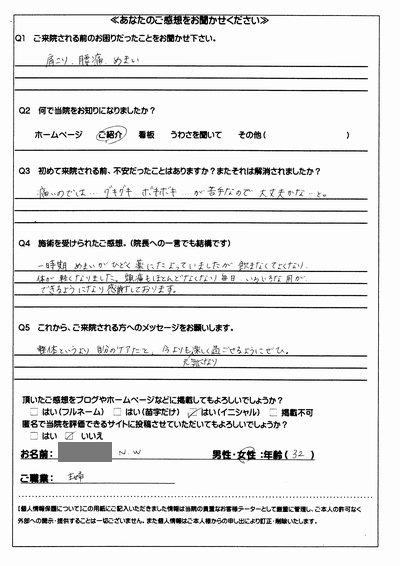 ≪あなたのご感想をお聞かせください≫
Q1 ご来院される前のお困りだったことをお聞かせ下さい。
肩こり、腰痛、めまい
Q2 何で当院をお知りになりましたか?
ホームページ ご紹介 看板 うわさを聞いて その他( )
Q3 初めて来院される前、不安だったことはありますか?またそれは解消されましたか?
痛いのでは… グキグキ ボキボキ… が苦手なので 大丈夫かな…と。
Q4 施術を受けられたご感想。(院長への一言でも結構です)
一時期 めまいがひどく薬にたよっていましたが 飲まなくてよくなり、
体が軽くなりました。頭痛もほとんどなくなり毎日 いろいろな事が
できるようになり感謝しております。
Q5 これから、ご来院される方へのメッセージをお願いします。
整体というより 自分のケアだと、今よりも楽しく過ごせるようにぜひ。
元気になり
頂いたご感想をブログやホームページなどに掲載してもよろしいでしょうか?
□はい(フルネーム) □はい(苗字だけ) ☑はい(イニシャル) □掲載不可
匿名で当院を評価できるサイトに投稿させていただいてもよろしいでしょうか?
□はい ☑いいえ
お名前: N.W 男性・女性:年齢(32)
ご職業: 主婦
【個人情報保護について】この用紙にご記入いただきました情報は当院の貴重なお客様データーとして厳重に管理し、ご本人の許可なく
外部への開示・提供することは一切ございません。また個人情報はご本人様からの申し出により訂正・削除いたします。